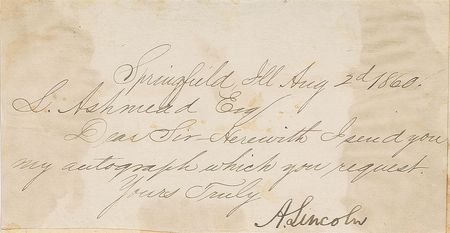 Springfield Ill Aug 2d 1860.
L. Ashmead Esq
Dear Sir Herewith I send you
my autograph which you request.
Yours Truly
A. Lincoln